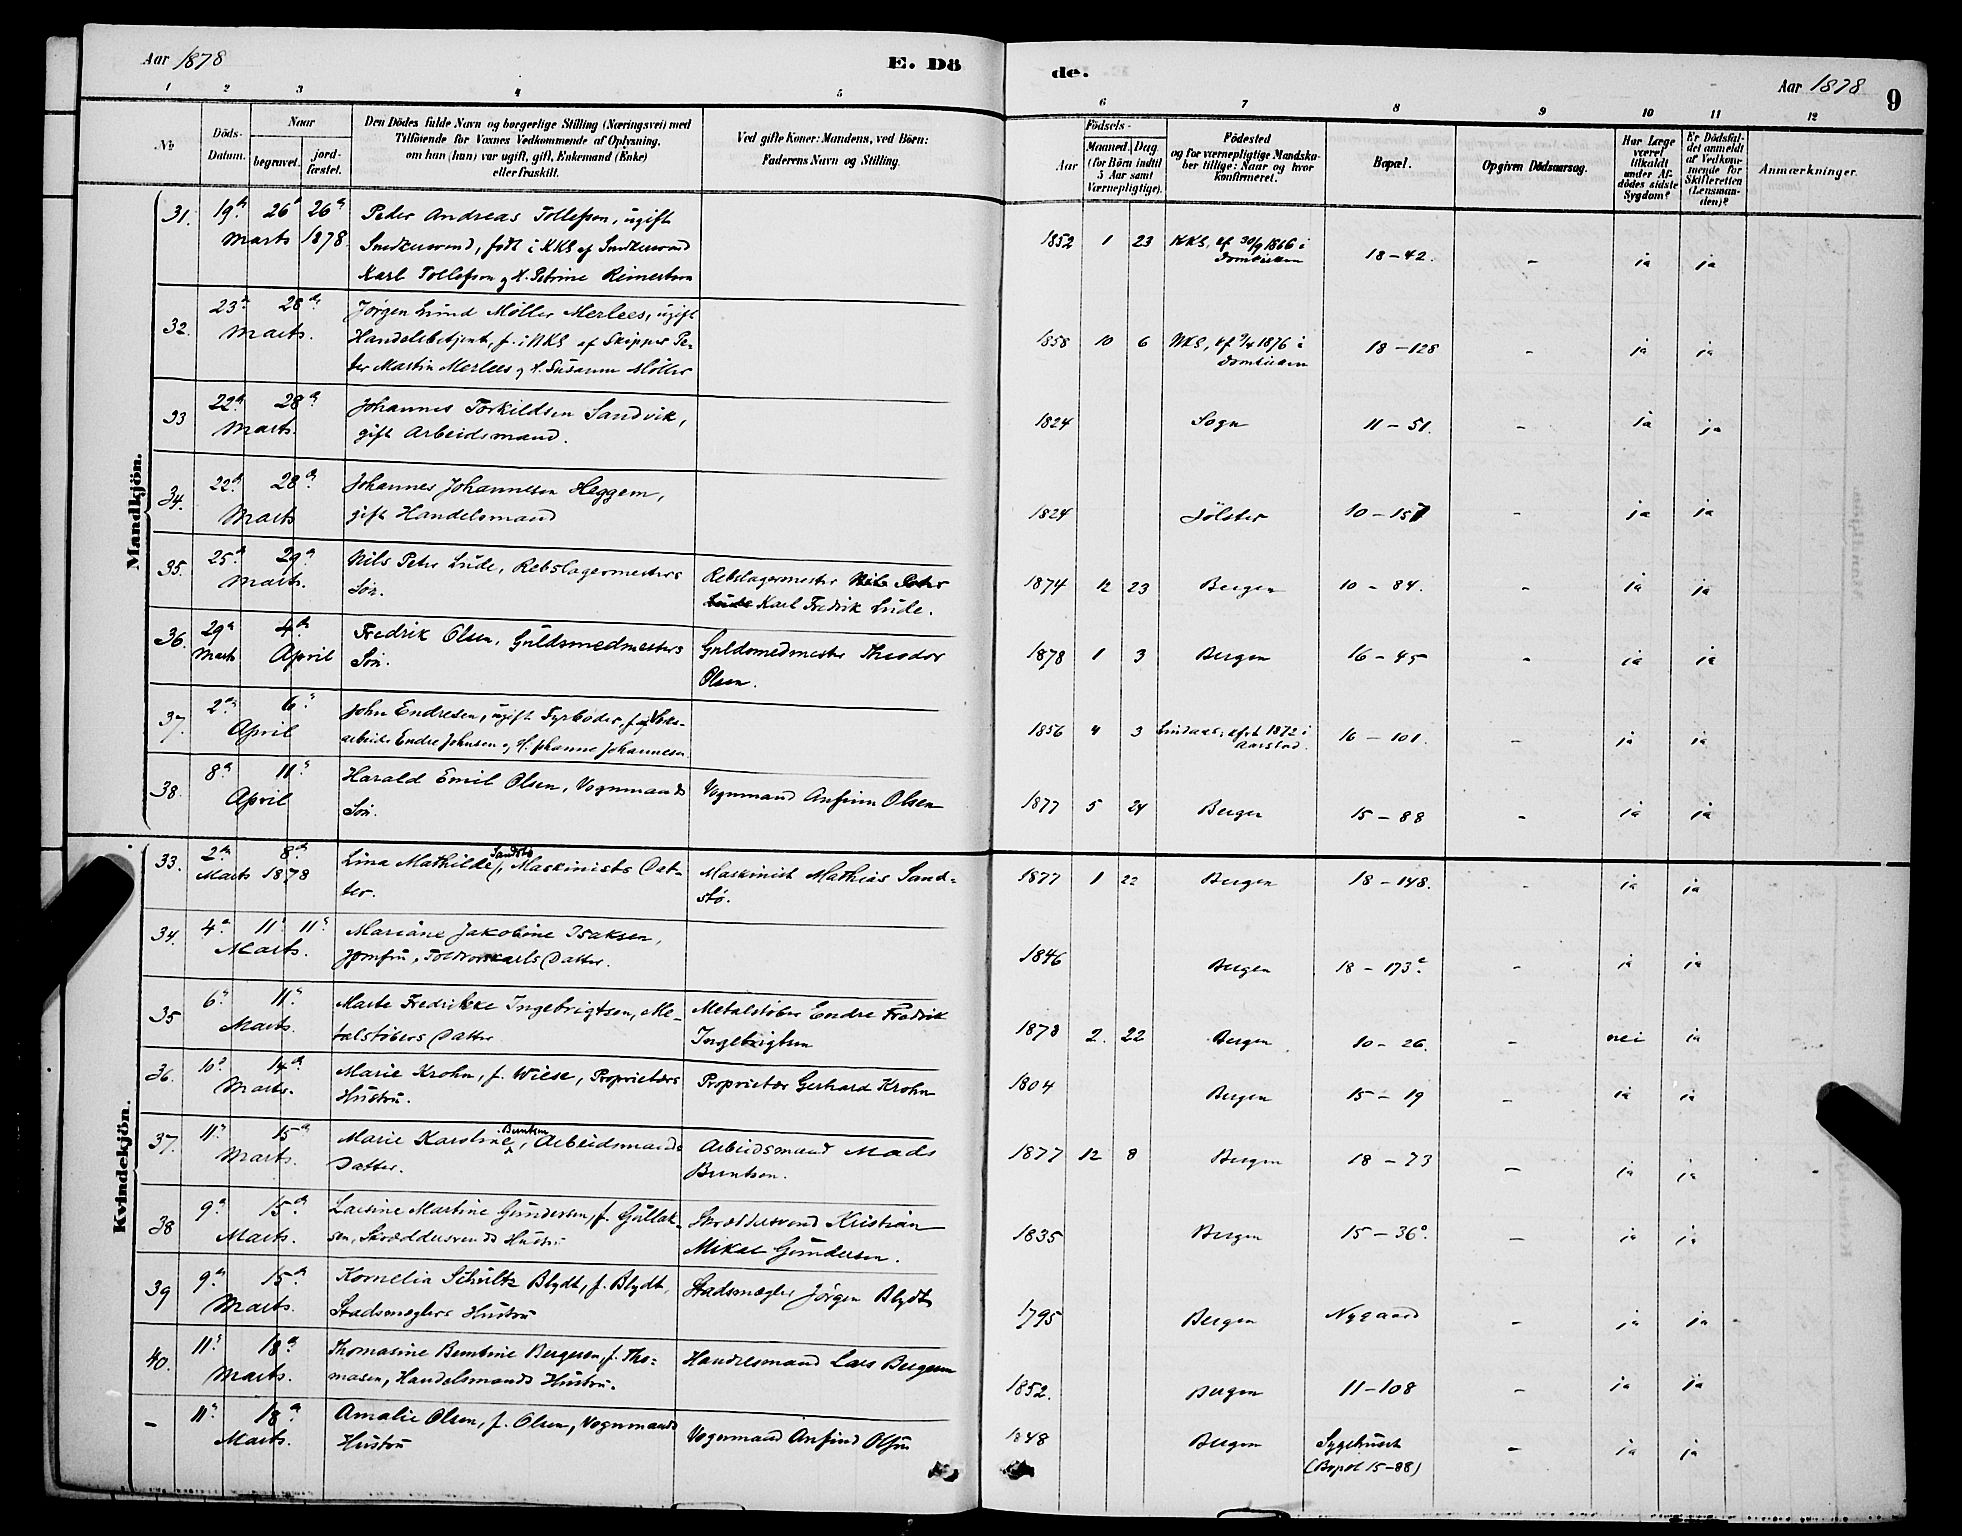 Aar 1878
E. Dö
de.
Aar 1878
9
1 2 3 4 5 6 7 8 9 10 11 12
No
Döds-Datum.
Naar
begravet.
jord-fæstet.
Den Dödes fulde Navn og borgerlige Stilling (Næringsvei) med
Tilföiende for Voxnes Vedkommende af Oplysning,
om han (hun) var ugift, gift, Enkemand (Enke)
eller fraskilt.
Ved gifte Koner: Mandens, ved Börn:
Faderens Navn og Stilling.
Födsels-
Aar
Maaned. Dag.
(for Börn indtil
5 Aar samt
Værnepligtige).
Födested
og for værnepligtige Mandska-
ber tillige: Naar og hvor
konfirmeret.
Bopæl.
Opgiven Dödsaarsag.
Har Læge
været
tilkaldt
under Af-
dödes sidste
Sygdom?
Er Dödsfal-
det anmeldt
af Vedkom-
mende for
Skifteretten
(Lensman-
den)?
Anmærkninger.
Mandkjön.
31. 19de 26de 26de Peder Andreas Tollefsen, ugift
Marts 1878 Snedkersvend, født i NKS af Snedkersvend
Karl Tollefsen og H. Petrine Reimertsen
1852 1 23 NKS, cf 30/9 1866 i Domkirken 18-42. - ja ja
32. 23de 28de Jørgen Lund Møller Merlees, ugift
Marts. Handelsbetjent, f. i NKS af Skipper Pe-
ter Martin Merlees og H. Susanne Møller
1858 10 6 NKS, cf 1876 i Domkirken 18-128 - ja ja
33 22de 28de Johannes Torkildsen Sandvik,
Marts. gift Arbeidsmand.
1824 Sogn 11-51. - ja ja
34. 22de 28de Johannes Johannesen Heggem,
Marts gift Handelsmand
1824 Jölster 10-157 - ja ja
35. 25de 29de Nils Peter Lude, Rebslagermesters Rebslagermester Nils Peter
Marts. Søn. Lude Karl Fredrik Lude.
1874 12 23 Bergen 10-84. - ja ja
36. 29de 4de Fredrik Olsen, Guldsmedmesters Guldsmedmester Theodor
Marts April Søn. Olsen.
1878 1 3 Bergen 16-45 - ja ja
37. 2den 6te John Endresen, ugift Fyrbøder,
April arbeider Endre Johnsen og H. Johanne Johannesen
1856 4 3 Lindaas, cf 1872 i Aarstad. 16-101. - ja ja
38. 8de 11te Harald Emil Olsen, Vognmands Vognmand Anfinn Olsen
April Søn.
1877 5 24 Bergen 15-88 - ja ja
Kvindekjön.
33. 2den 8de Lina Mathilde Sandstø, Maskinists Dat- Maskinist Mathias Sand-
Marts 1878 ter. stø.
1877 1 22 Bergen 18-148. - ja ja
34. 4de 11te 11te Mariane Jakobine Isaksen,
Marts. Jomfru, Toldrorskarls Datter.
1846 Bergen 18-173c. - ja ja
35 6te 11te Marte Fredrikke Ingebrigtsen, Me- Metalstøber Endre Fredrik
Marts. talstøbers Datter Ingebrigtsen
1878 2. 22 Bergen 10-26. - nei ja
36. 10de 14de Marie Krohn, f. Wiese, Proprietærs Proprietær Gerhard Krohn
Marts. Hustru.
1804 Bergen 15-19 - ja ja
37. 11te 15de Marie Karoline Buntsen, Arbeidsmands Arbeidsmand Mads
Marts. Datter. Buntsen.
1877 12 8 Bergen 18-73 - ja ja
38 9de 15de Lavine Martine Gundersen, f. Gullak- Skræddersvend Kristian
Marts. sen, Skræddersvends Hustru Mikal Gundersen.
1835 Bergen 15-36c. - ja ja
39 9de 15de Kornelia Schultz Blydt, f. Blydt, Stadsmægler Jørgen Blydt
Marts. Stadsmæglers Hustru
1795 Bergen Nygaard - ja ja -
40. 11te 18de Thomasine Berntine Bergesen, f. Tho- Handelsmand Lars Bergesen
Marts. masen, Handelsmands Hustru.
1852. Bergen 11-108 - ja ja
- 11te 18de Amalie Olsen, f. Olsen, Vognmands Vognmand Anfind Olsen
Marts. Hustru
1848 Bergen Sygehuset - ja ja
(Bopæl 15-88)